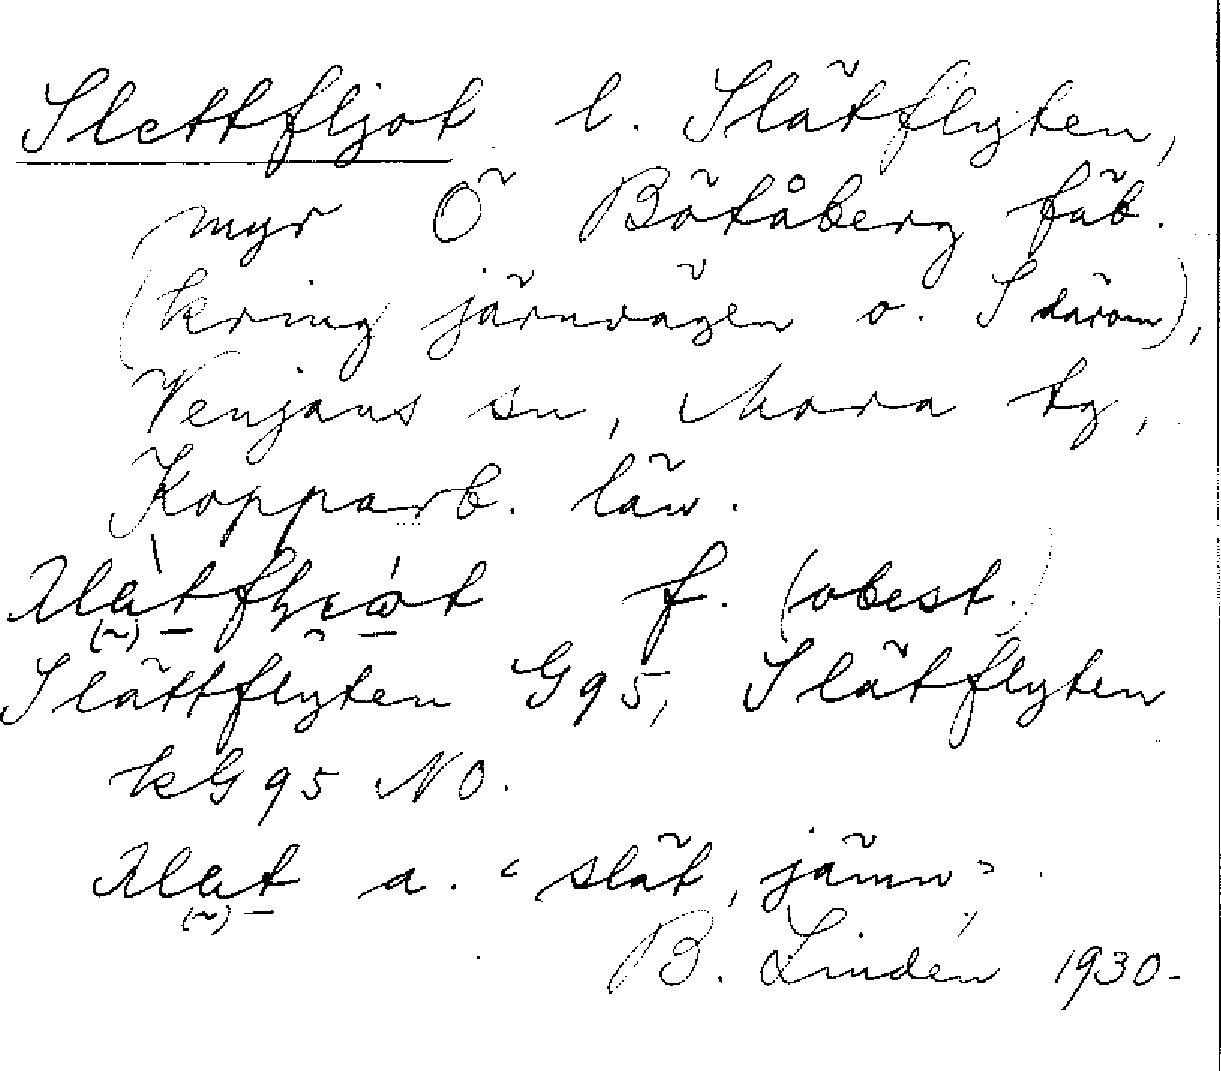 Slettfljot l. Slätflyten,
myr Ö Bötåberg fäb.
(kring järnvägen o. S därom),
Venjans sn, Mora tg,
Kopparb. län.
f. (obest.)
Slättflyten G95, Slätflyten
kG95 NO.
a. "slät, jämn".
B. Lindén 1930.